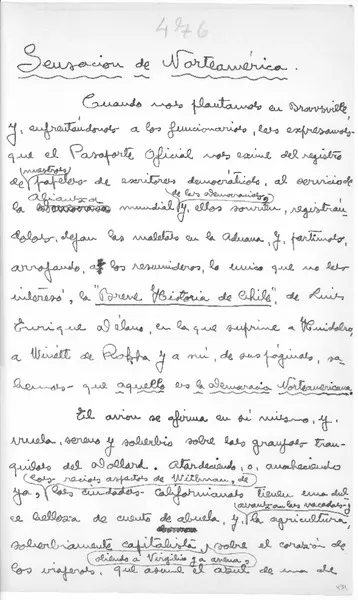 476
Sensacion de Norteamérica.
Cuando nos plantamos en Brownsville
y, enfrentándonos a los funcionarios, les expresamos
que el Pasaporte Oficial nos exime del registro
nuestros
de papeles de escritores democráticos, al servicio de
Alianza de las democracias,
la mundial y, ellos sonríen, registrán
dolos, dejan las maletas en la Aduana, y, partimos,
arrojando, a los resumideros, lo unico que no les
interesó, la "Breve Historia de Chile", de Luis
Enrique Délano, en la que suprime a Huidobro,
a Winétt de Rokha y a mí, de sus páginas, sa-
bemos que aquello es la democracia Norteamericana.
El avion se afirma en sí mismo, y,
vuela, sereno y soberbio sobre los granjales tran-
quilos del Dollard. Atardeciendo, o, anocheciendo
con recios aspectos de Withman, de
ya, las ciudades californianas tienen una dul
avanzan las vacadas y
ce belleza de cuento de abuela, y, la agricultura,
soberbiamente capitalista, sobre el corazón de
oliendo a Virgilio y a avena,
los viajeros, que asume el azul de una de